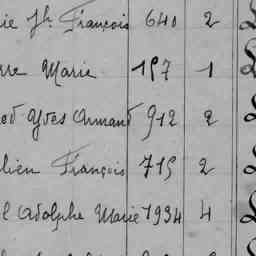 ie Jh. François 640 2
rre Marie 157 1
ed Yves Armand 912 2
lien François 715 2
l Adolphe Marie 1934 4